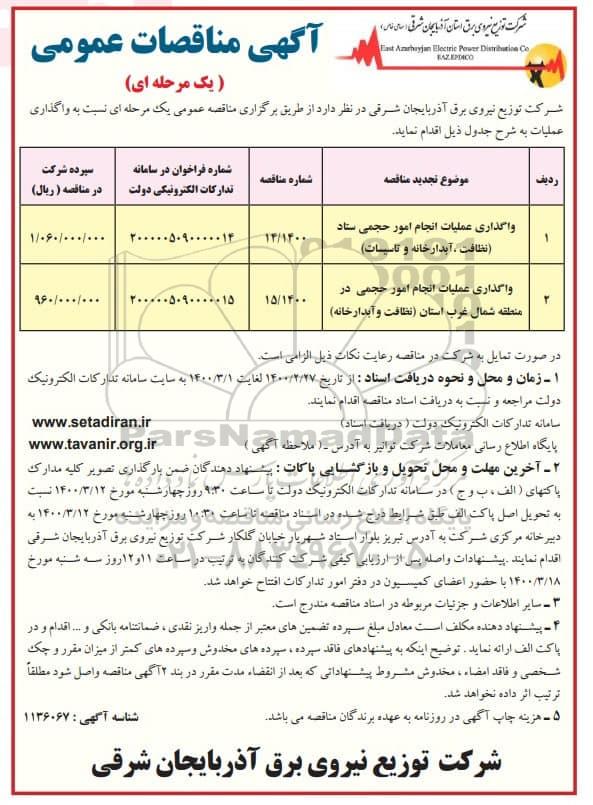 شرکت توزیع نیروی برق استان آذربایجان شرقی (سهامی خاص)
East Azarbayjan Electric Power Distribution Co
EAZ.EPDICO
آگهی مناقصات عمومی
( یک مرحله ای)
شرکت توزیع نیروی برق آذربایجان شرقی در نظر دارد از طریق برگزاری مناقصه عمومی یک مرحله ای نسبت به واگذاری
عملیات به شرح جدول ذیل اقدام نماید.
ردیف | موضوع تجدید مناقصه | شماره مناقصه | شماره فراخوان در سامانه تدارکات الکترونیکی دولت | سپرده شرکت در مناقصه ( ریال)
۱ | واگذاری عملیات انجام امور حجمی ستاد (نظافت ،آبدارخانه و تاسیسات) | ۱۴/۱۴۰۰ | ۲۰۰۰۰۰۵۰۹۰۰۰۰۰۱۴ | ۱/۰۶۰/۰۰۰/۰۰۰
۲ | واگذاری عملیات انجام امور حجمی در منطقه شمال غرب استان (نظافت وآبدارخانه) | ۱۵/۱۴۰۰ | ۲۰۰۰۰۰۵۰۹۰۰۰۰۰۱۵ | ۹۶۰/۰۰۰/۰۰۰
در صورت تمایل به شرکت در مناقصه رعایت نکات ذیل الزامی است.
۱ ـ زمان و محل و نحوه دریافت اسناد : از تاریخ ۱۴۰۰/۲/۲۷ لغایت ۱۴۰۰/۳/۱ به سایت سامانه تدارکات الکترونیک
دولت مراجعه و نسبت به دریافت اسناد مناقصه اقدام نمایند.
سامانه تدارکات الکترونیک دولت ( دریافت اسناد) www.setadiran.ir
پایگاه اطلاع رسانی معاملات شرکت توانیر به آدرس ـ ( ملاحظه آگهی ) www.tavanir.org.ir
۲ ـ آخرین مهلت و محل تحویل و بازگشایی پاکات : پیشنهاد دهندگان ضمن بارگذاری تصویر کلیه مدارک
پاکتهای ( الف ، ب و ج ) در سامانه تدارکات الکترونیک دولت تا ساعت ۹:۳۰ روزچهارشنبه مورخ ۱۴۰۰/۳/۱۲ نسبت
به تحویل اصل پاکت الف طبق شرایط درج شده در اسناد مناقصه تا ساعت ۱۰:۳۰ روزچهارشنبه مورخ ۱۴۰۰/۳/۱۲ به
دبیرخانه مرکزی شرکت به آدرس تبریز بلوار استاد شهریار خیابان گلکار شرکت توزیع نیروی برق آذربایجان شرقی
اقدام نمایند .پیشنهادات واصله پس از ارزیابی کیفی شرکت کنندگان به ترتیب در ساعت ۱۱و۱۲روز سه شنبه مورخ
۱۴۰۰/۳/۱۸ با حضور اعضای کمیسیون در دفتر امور تدارکات افتتاح خواهد شد.
۳ ـ سایر اطلاعات و جزئیات مربوطه در اسناد مناقصه مندرج است.
۴ ـ پیشنهاد دهنده مکلف است معادل مبلغ سپرده تضمین های معتبر از جمله واریز نقدی ، ضمانتنامه بانکی و ... اقدام و در
پاکت الف ارائه نماید . توضیح اینکه به پیشنهادهای فاقد سپرده ، سپرده های مخدوش وسپرده های کمتر از میزان مقرر و چک
شخصی و فاقد امضاء ، مخدوش مشروط پیشنهاداتی که بعد از انقضاء مدت مقرر در بند ۲آگهی مناقصه واصل شود مطلقاً
ترتیب اثر داده نخواهد شد.
۵ ـ هزینه چاپ آگهی در روزنامه به عهده برندگان مناقصه می باشد. شناسه آگهی : ۱۱۳۶۰۶۷
شرکت توزیع نیروی برق آذربایجان شرقی
ParsNamadData
۰۲۱-۸۸۳۴۹۶۷۰-۵